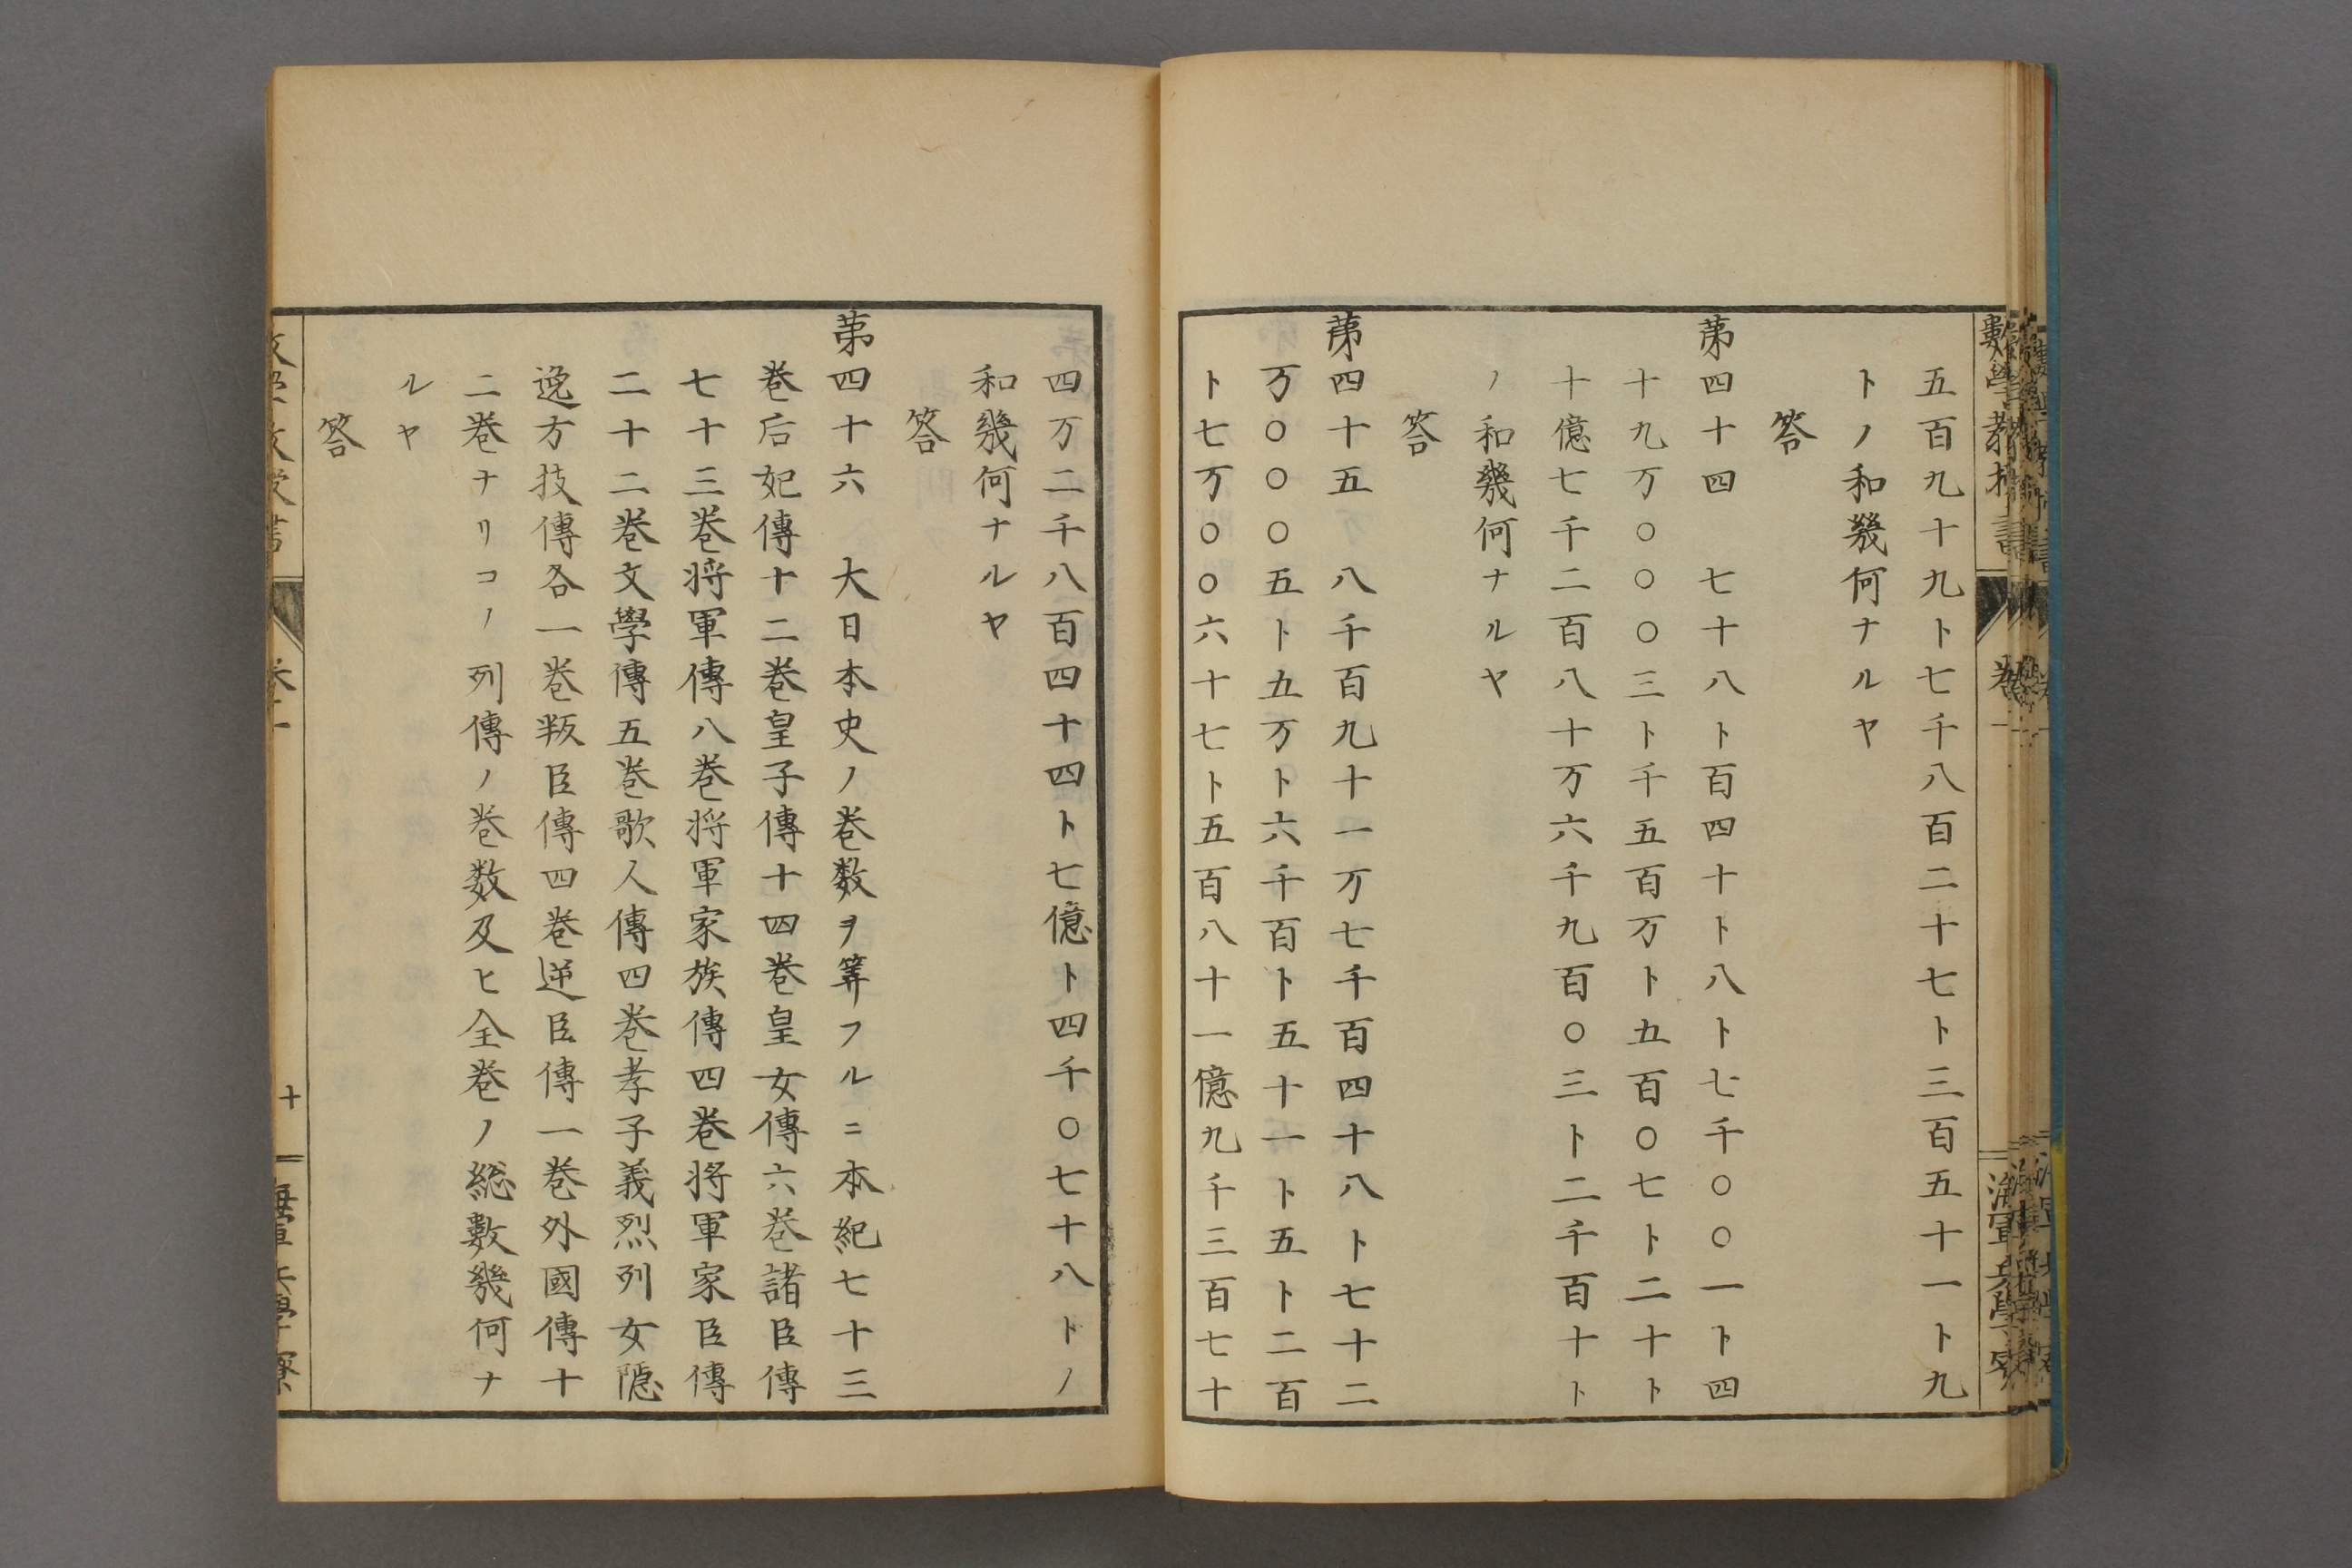 五百九十九ト七千八百二十七ト三百五十一ト九
トノ和幾何ナルヤ
答
第四十四　七十八ト百四十ト八ト七千〇〇一ト四
十九万〇〇〇三ト千五百万ト五百〇七ト二十ト
十億七千二百八十万六千九百〇三ト二千百十ト
ノ和幾何ナルヤ
答
第四十五　八千百九十一万七千百四十八ト七十二
万〇〇〇五ト五万ト六千百ト五十一ト五ト二百
ト七万〇〇六十七ト五百八十一億九千三百七十
四万二千八百四十四ト七億ト四千〇七十八トノ
和幾何ナルヤ
答
第四十六　大日本史ノ巻数ヲ筭フルニ本紀七十三
巻后妃傳十二巻皇子傳十四巻皇女傳六巻諸臣傳
七十三巻将軍傳八巻将軍家族傳四巻将軍家臣傳
二十二巻文學傳五巻歌人傳四巻孝子義烈列女隠
逸方技傳各一巻叛臣傳四巻逆臣傳一巻外國傳十
二巻ナリコノ列傳ノ巻数及ヒ全巻ノ総數幾何ナ
ルヤ
答
十